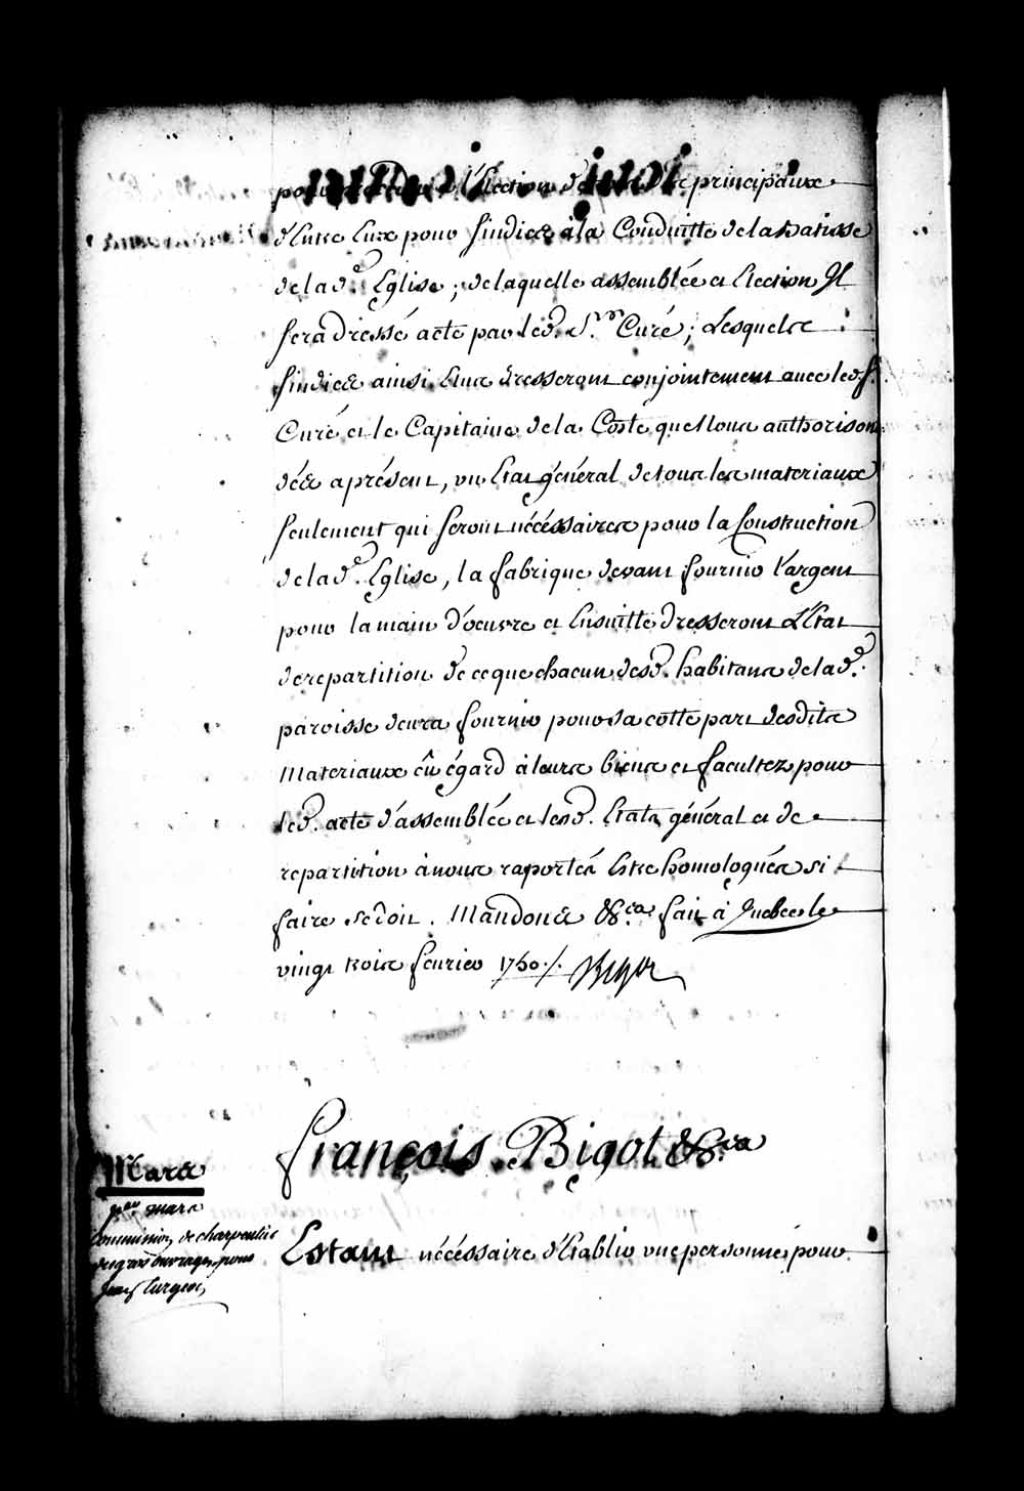 l'Election de principaux
d'Entre Eux pour sindics à la Conduitte de la Batisse
de la d.e Eglise; de laquelle assemblée et Election Il
sera dressé acte par led. S.r Curé; Lesquels
sindics ainsi Elus dresseront conjointement avec led. S.r
Curé et le Capitaine de la Coste que Nous authorisons
dés aprésent, un Etat général de tous les materiaux
seulement qui seront nécéssaires pour la Construction
de la d.e Eglise, la fabrique devant fournir l'argent
pour la main d'oeuvre et Ensuitte dresseront L'Etat
de repartition de ce que chacun desd. habitans de la d.e
paroisse devra fournir pour sa cotte part desdits
Materiaux eû égard à leurs biens et facultez pour
led. acte d'assemblée et lesd. Etats général et de
repartition à nous raportés Estre homologués si
faire se doit. Mandons &c.a fait à Quebec le
vingt trois fevrier 1750 ./. Bigot
François Bigot &c.a
Mars
p.er mars
Commission de charpentier
de gros ouvrages pour
Turgeon,
Estant nécéssaire d'Etablir une personne pour